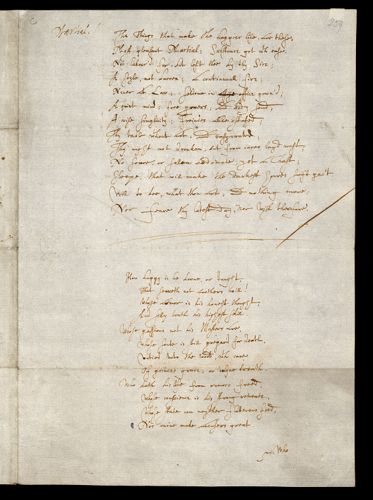 Martial.
259
The Things that make the happier life, are these,
Most pleasant Martial; Substance got wth ease,
Not labour'd for, but left thee by thy Sire;
A Soyle, not barren; a Continuall fire;
Never at Law; seldome in office gown'd;
A quiet mind; free powers; & body sound;
A wise simplicity; Freindes alike-stated;
Thy table without art, & easy-rated:
Thy night not dronken, but from cares layd wast;
No sowre, or sollen bed-mate, yet a Chast;
Sleepe, that will make the darkest howres swift-pac't;
Will to bee, what thou art; & nothing more:
Nor feare thy latest day, nor wish therfore.
How happy is he borne, or taught,
That serveth not anothers will!
Whose armor is his honest thought,
And silly truth his highest skill
Whose passions not his Masters are,
Whose soule is still prepar'd for death,
Untied unto the world with care
Of princes grace, or vulgar breath
Who hath his life from rumors freed
Whose conscience is his strong retreate,
Whose state can neyther flatterers feed,
Nor ruine make accusers great
Who